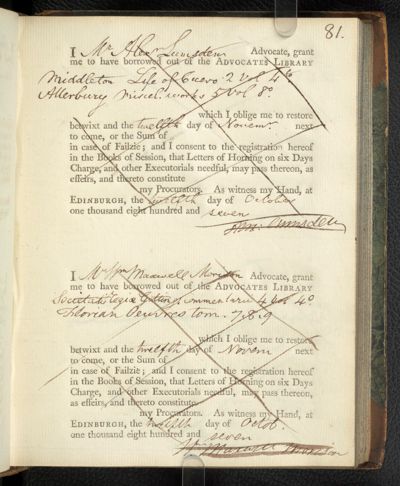 81.
I Mr Alexr Lumsden Advocate, grant
me to have borrowed out of the ADVOCATES LIBRARY
Middleton Life of Cicero 2 vol 4to
Atterbury miscel. works 5 vol 8o.
which I oblige me to restore
betwixt and the twelfth day of Novemr. next
to come, or the Sum of
in case of Failzie; and I consent to the registration hereof
in the Books of Session, that Letters of Horning on six Days
Charge, and other Executorials needful, may pass thereon, as
effeirs, and thereto constitute
my Procurators. As witness my Hand, at
EDINBURGH, the twelfth day of October
one thousand eight hundred and seven
Alexr. Lumsden
I Mr Wm Maxwell Morison Advocate, grant
me to have borrowed out of the ADVOCATES LIBRARY
Societatis Regiæ Commentarii 4 vol 4o
Florian Oeuvres tom. 7.8.9
which I oblige me to restore
betwixt and the twelfth day of Novem next
to come, or the Sum of
in case of Failzie; and I consent to the registration hereof
in the Books of Session, that Letters of Horning on six Days
Charge, and other Executorials needful, may pass thereon,
as effeirs, and thereto constitute
my Procurators. As witness my Hand, at
EDINBURGH, the twelfth day of Octob.
one thousand eight hundred and seven
Wm Maxwell Morison